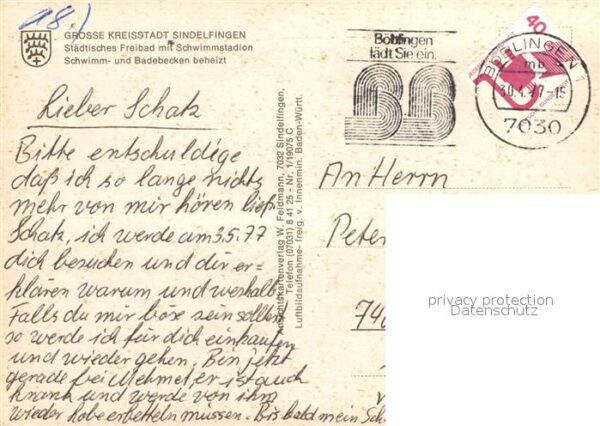 18.)
GROSSE KREISSTADT SINDELFINGEN
Städtisches Freibad mit Schwimmstadion
Schwimm- und Badebecken beheizt
Böblingen
lädt Sie ein.
BB
40
BÖBLINGEN 1
mb
30.4.77-15
7030
Lieber Schatz
Bitte entschuldige
daß ich so lange nichts
mehr von mir hören ließ.
Schatz, ich werde am 3.5.77
dich besuchen und dir er-
klären warum und weshalb
Falls du mir böse sein solltest
so werde ich für dich einkaufen
und wieder gehen. Bin jetzt
gerade frei Mehmet, er ist auch
krank und werde von ihm
wieder erbetteln müssen. Bis bald mein Sch
Ansichtskartenverlag W. Feldmann, 7032 Sindelfingen,
Telefon (07031) 8 41 25 - Nr. 1/19075 C
Luftbildaufnahme- freig. v. Innenmin. Baden-Württ.
An Herrn
Peter
740
privacy protection
Datenschutz